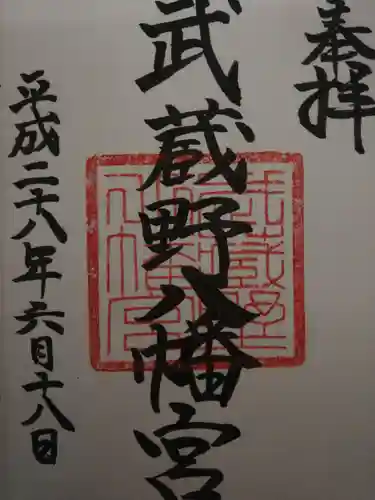 奉拝
武蔵野八幡宮
武蔵野八幡宮
平成二十八年六月十八日